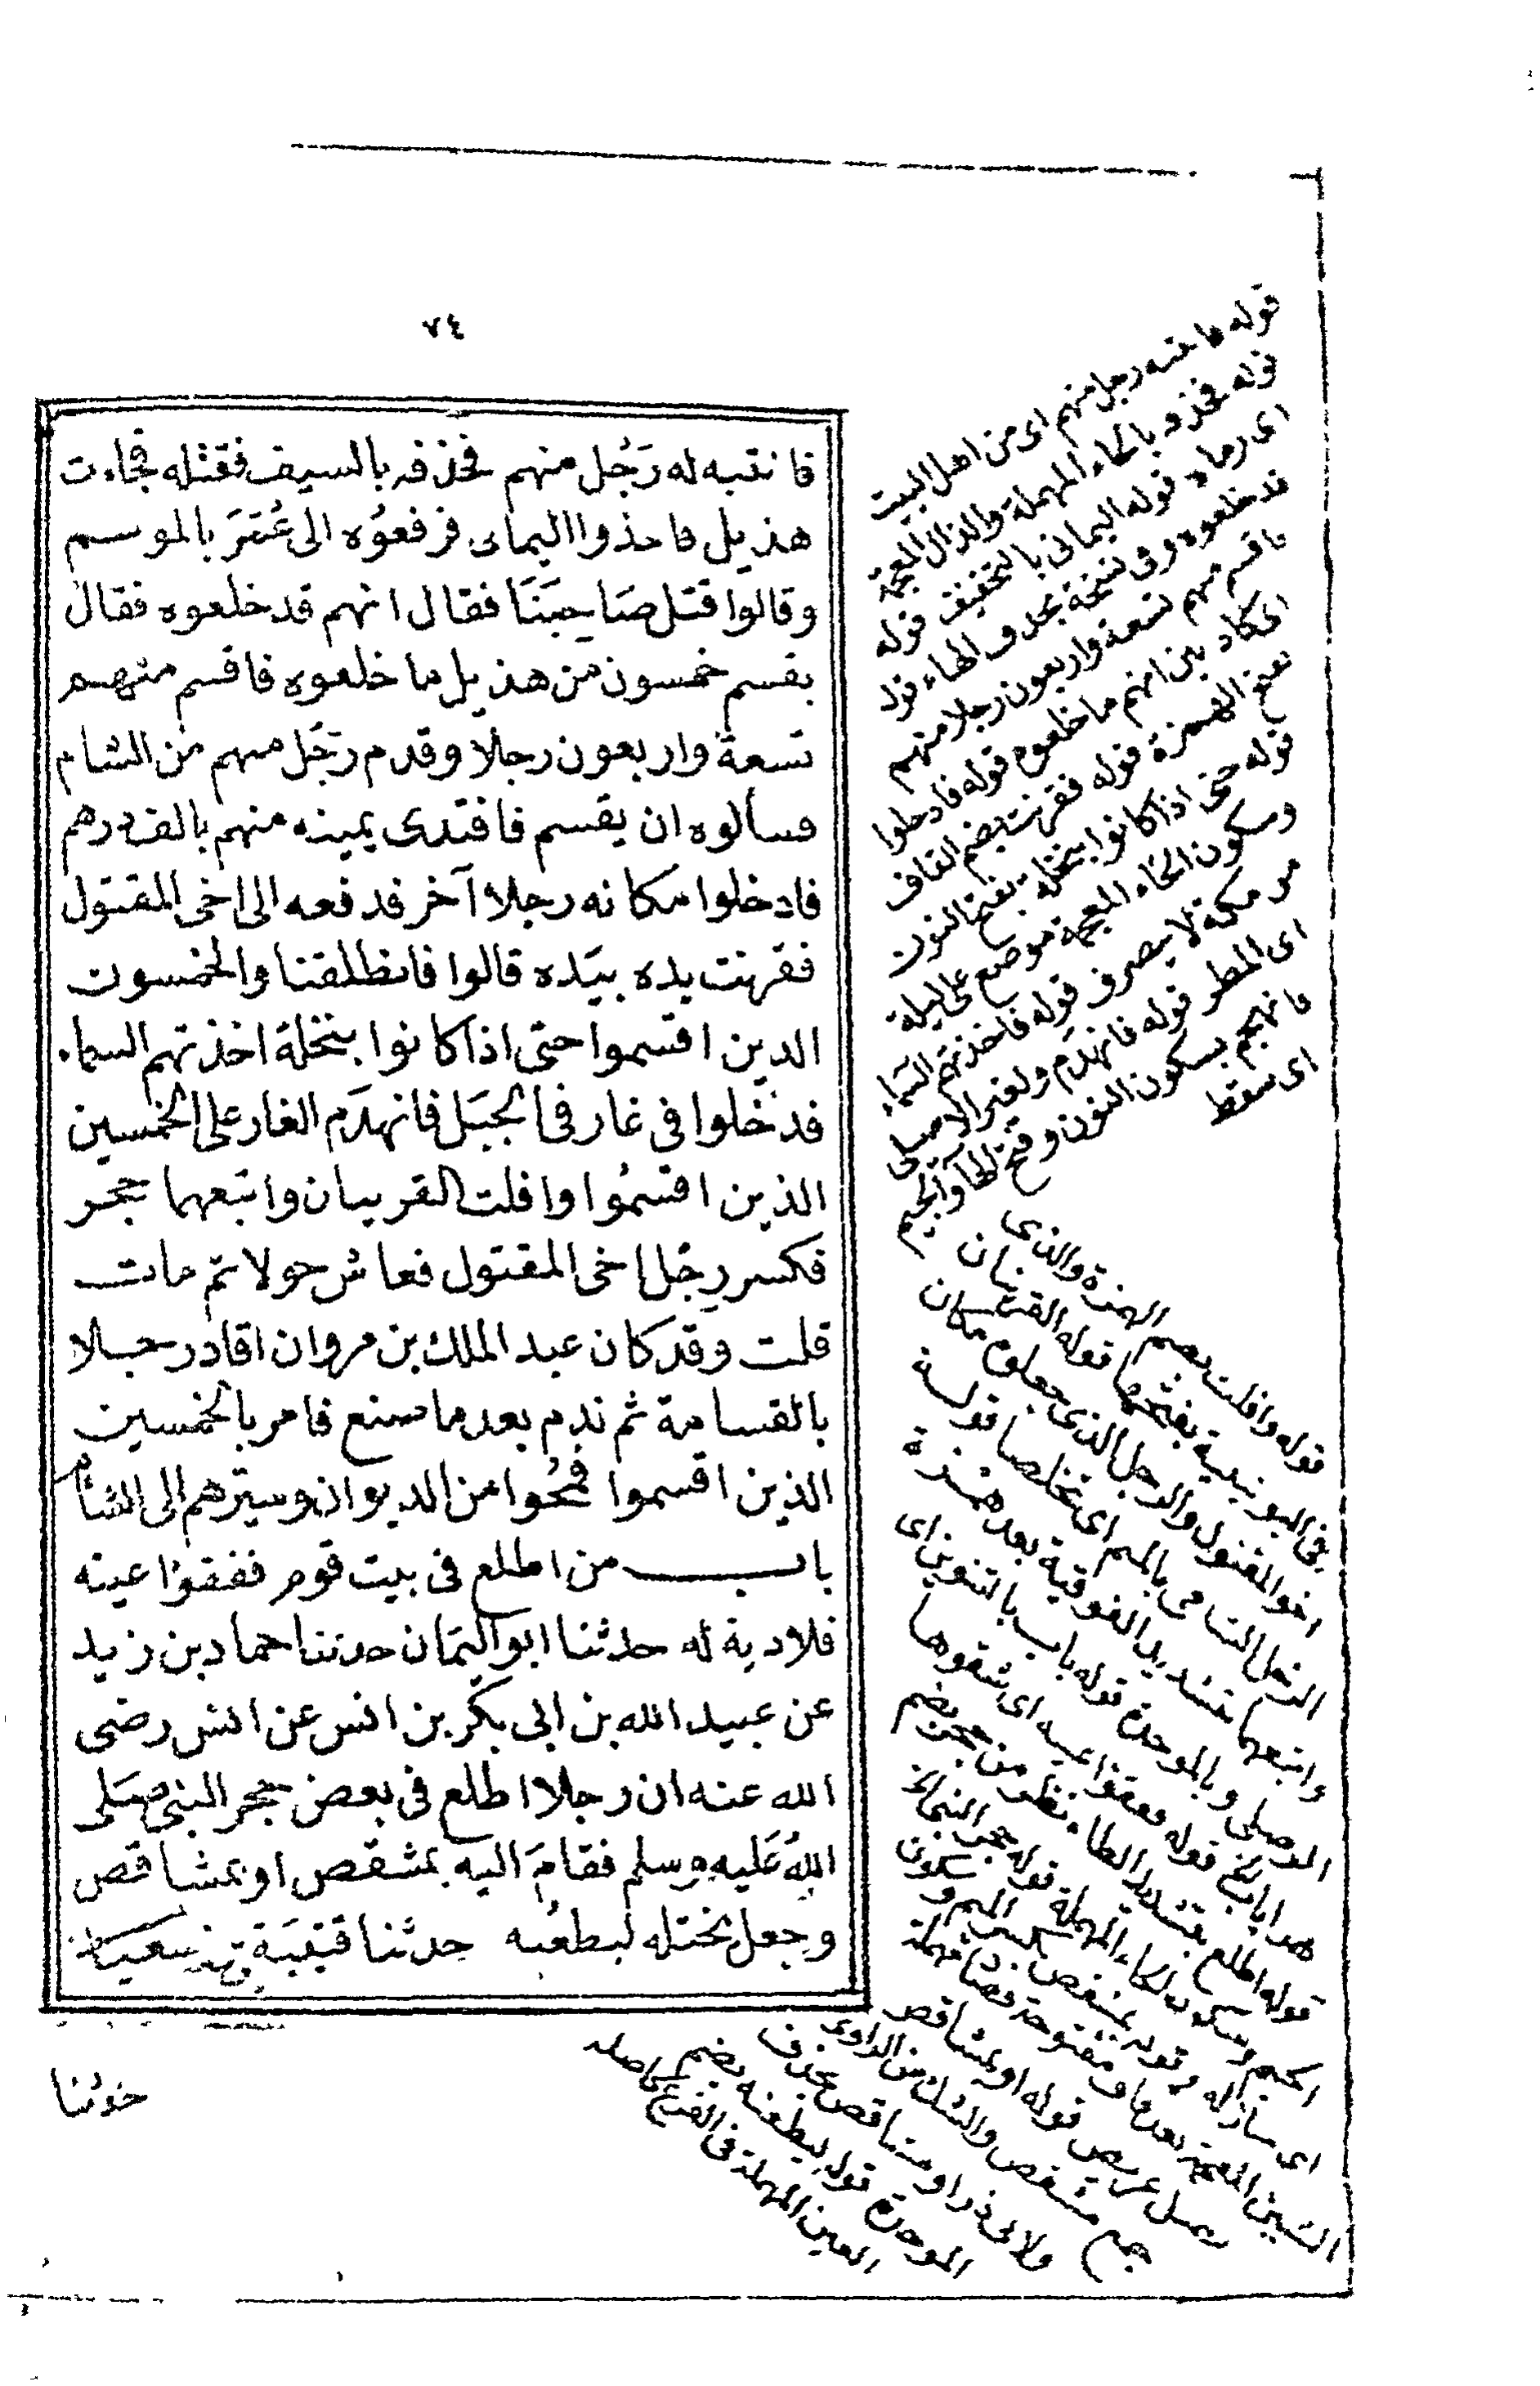 ٧٤
فانتبه له رَجُل منهم فخذفه بالسيف فقتله فجاءت
هذيل فاخذوا اليمانى فرفعوُه الى عُمَرَ بالموسم
وقالوا قتل صَاحِبَنَا فقال انهم قد خلعوه فقال
يقسم خمسون من هذيل ما خلعوه فاقسم منهم
تسعة واربعون رجلا وقدم رَجُل منهم من الشام
فسألوه ان يقسم فافتدى يمينه منهم بالف درهم
فادخلوا مكانه رجلا آخر فدفعه الى اخى المقتول
فقرنت يده بيَده قالوا فانطلقنا والخمسون
الذين اقسموا حتى اذا كانوا بنخلة اخذتهم السماء
فدخلوا فى غار فى الجبَل فانهدَم الغار على الخمسين
الذين اقسمُوا وافلت القرينان واتبعهما حجر
فكسر رجْل اخى المقتول فعاش حولا ثم مات
قلت وقد كان عبد الملك بن مروان اقاد رجلا
بالقسامة ثم ندم بعد ما صنع فامر بالخمسين
الذين اقسموا فمُحُوا من الديوان وسيّرهم الى الشام
باب من اطلع فى بيت قوم ففقؤا عينه
فلا دية له حدثنا ابو اليمَان حدثنا حماد بن زيد
عن عبيد الله بن ابى بكر بن انس عن انس رضى
الله عنه ان رجلا اطلع فى بعض حجر النبى صَلى
اللهُ عَليه وسلم فقامَ اليه بمشقص او بمشاقص
وجعل يختله ليطعُنه حدثنا قتيبَة بن سعيد
حدثنا
قوله فانتبه رجل منهم اى من اهل البيت
قوله فخذفه بالحاء المهملة والذال المعجمة
اى رماه قوله اليمانى بالتخفيف قوله
قد خلعوه وفى نسخة بحذف الهاء قوله
فاقسم منهم تسعة واربعون رجلا منهم
اى كاذبين انهم ما خلعوه قوله فادخلوا
بفتح الهمزة قوله فقرنت بضم القاف
قوله حتى اذا كانوا بنخلة بفتح النون
وسكون الخاء المعجمة موضع على ليلة
من مكة لا ينصرف قوله فاخذتهم السماء
اى المطر قوله فانهدم ولغير الاصيلى
فانهجم بسكون النون وفتح الهاء والجيم
اى سقط
قوله وافلت بضم الهمزة والذى
فى اليونينية بفتحها قوله القرينان
اخو المقتول والرجل الذى جعلوه مكان
الرجل الشامى بالميم اى تخلصا قوله
واتبعهما بتشديد الفوقية بعد همزة
الوصل وبالموحدة قوله باب بالتنوين اى
هذا باب الخ قوله ففقؤا عينه اى شقوها
قوله اطلع بتشديد الطاء نظر من حجر بضم
الجيم وسكون الحاء المهملة قوله حجر النبى الخ
اى منازله وقوله بمشقص بكسر الميم وسكون
الشين المعجمة بعدها قاف مفتوحة فصاد مهملة
نصل عريض قوله او بمشاقص
جمع مشقص والشك من الراوى
ولابى ذر او مشاقص بحذف
الموحدة قوله ليطعنه بضم
العين المهملة فى الفتح كاصله